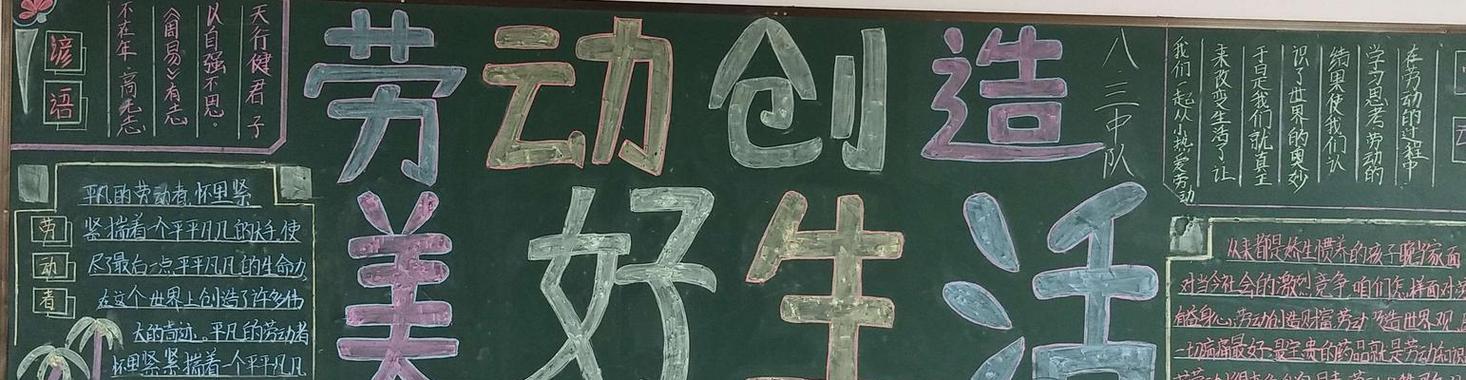 谚语
天行健君子
以自强不思。
《周易》有志
不在年高无志
劳动创造
美好生活
八.三中队
在劳动的过程中
学习思考,劳动的
结果使我们认
识了世界的奥妙
于是我们就真正
来改变生活了,让
我们一起从小热爱劳动
劳动者
平凡的劳动者,怀里紧
紧揣着一个平平凡凡的大手,使
尽了最后一点平平凡凡的生命力,
在这个世界上创造了许多伟
大的奇迹。平凡的劳动者
怀里紧紧揣着一个平平凡凡
从来都是娇生惯养的孩子
对当今社会的激烈竞争咱们怎样面对
益身心,劳动创造财富劳动
一切病痛最好最宝贵的药品就是劳动知识